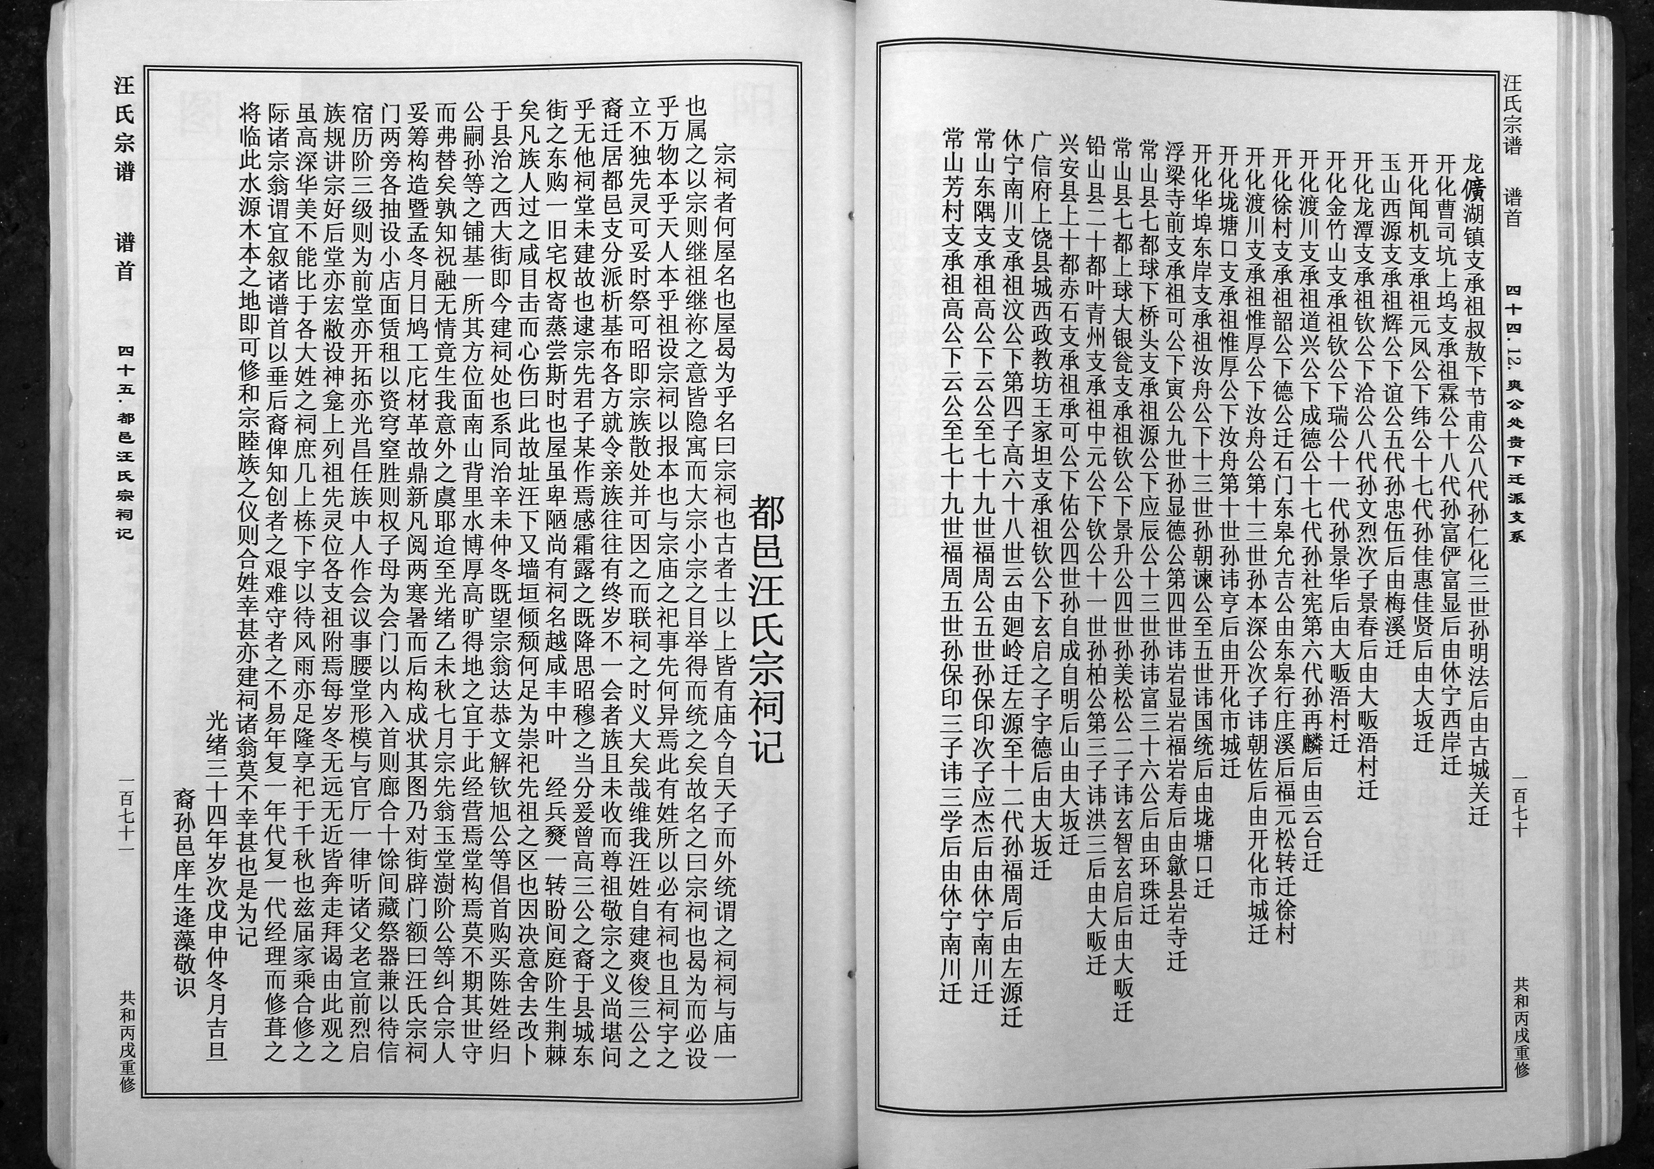 汪氏宗谱 谱首 四十四.12.爽公处贵下迁派支系 一百七十 共和丙戌重修
龙游湖镇支承祖叔敖下节甫公八代孙仁化三世孙明法后由古城关迁
开化曹司坑上坞支承祖霖公十八代孙富俨富显后由休宁西岸迁
开化闻机支承祖元凤公下纬公十七代孙佳惠佳贤后由大坂迁
玉山西源支承祖辉公下谊公五代孙忠伍后由梅溪迁
开化龙潭支承祖钦公下洽公八代孙文烈次子景春后由大畈浯村迁
开化金竹山支承祖钦公下瑞公十一代孙景华后由大畈浯村迁
开化渡川支承祖道兴公下成德公十七代孙社宪第六代孙再麟后由云台迁
开化徐村支承祖韶公下德公迁石门东皋允吉公由东皋行庄溪后福元松转迁徐村
开化渡川支承祖惟厚公下汝舟公第十三世孙本深公次子讳朝佐后由开化市城迁
开化垅塘口支承祖惟厚公下汝舟第十世孙讳亨后由开化市城迁
开化华埠东岸支承祖汝舟公下十三世孙朝谏公至五世讳国统后由垅塘口迁
浮梁寺前支承祖可公下寅公九世孙显德公第四世讳岩显岩福岩寿后由歙县岩寺迁
常山县七都球下桥头支承祖源公下应辰公十三世孙讳富三十六公后由环珠迁
常山县七都上球大银瓮支承祖钦公下景升公四世孙美松公二子讳玄智玄启后由大畈迁
铅山县二十都叶青州支承祖中元公下钦公十一世孙柏公第三子讳洪三后由大畈迁
兴安县上十都赤石支承祖承可公下佑公四世孙自成自明后山由大坂迁
广信府上饶县城西政教坊王家坦支承祖钦公下玄启之子宇德后由大坂迁
休宁南川支承祖汶公下第四子高六十八世云由廻岭迁左源至十二代孙福周后由左源迁
常山东隅支承祖高公下云公至七十九世福周公五世孙保印次子应杰后由休宁南川迁
常山芳村支承祖高公下云公至七十九世福周五世孙保印三子讳三学后由休宁南川迁
都邑汪氏宗祠记
宗祠者何屋名也屋曷为乎名曰宗祠也古者士以上皆有庙今自天子而外统谓之祠祠与庙一
也属之以宗则继祖继祢之意皆隐寓而大宗小宗之目举得而统之矣故名之曰宗祠也曷为而必设
乎万物本乎天人本乎祖设宗祠以报本也与宗庙之祀事先何异焉此有姓所以必有祠也且祠宇之
立不独先灵可妥时祭可昭即宗族散处并可因之而联祠之时义大矣哉维我汪姓自建爽俊三公之
裔迁居都邑支分派析基布各方就令亲族往往有终岁不一会者族且未收而尊祖敬宗之义尚堪问
乎无他祠堂未建故也逮宗先君子某作焉感霜露之既降思昭穆之当分爰曾高三公之裔于县城东
街之东购一旧宅权寄蒸尝斯时也屋虽卑陋尚有祠名越咸丰中叶 经兵燹一转盼间庭阶生荆棘
矣凡族人过之咸目击而心伤曰此故址汪下又墙垣倾颓何足为崇祀先祖之区也因决意舍去改卜
于县治之西大街即今建祠处也系同治辛未仲冬既望宗翁达恭文解钦旭公等倡首购买陈姓经归
公嗣孙等之铺基一所其方位面南山背里水博厚高旷得地之宜于此经营焉堂构焉莫不期其世守
而弗替矣孰知祝融无情竟生我意外之虞耶迨至光绪乙未秋七月宗先翁玉堂澍阶公等纠合宗人
妥筹构造暨孟冬月日鸠工庀材革故鼎新凡阅两寒暑而后构成状其图乃对街辟门额曰汪氏宗祠
门两旁各抽设小店面赁租以资穹窒胜则权子母为会门以内入首则廊合十馀间藏祭器兼以待信
宿历阶三级则为前堂亦开拓亦光昌任族中人作会议事腰堂形模与官厅一律听诸父老宣前烈启
族规讲宗好后堂亦宏敝设神龛上列祖先灵位各支祖附焉每岁冬无远无近皆奔走拜谒由此观之
虽高深华美不能比于各大姓之祠庶几上栋下宇以待风雨亦足隆享祀于千秋也兹届家乘合修之
际诸宗翁谓宜叙诸谱首以垂后裔俾知创者之艰难守者之不易年复一年代复一代经理而修葺之
将临此水源木本之地即可修和宗睦族之仪则合姓幸甚亦建祠诸翁莫不幸甚也是为记
光绪三十四年岁次戊申仲冬月吉旦
裔孙邑庠生逢藻敬识
汪氏宗谱 谱首 四十五.都邑汪氏宗祠记 一百七十一 共和丙戌重修